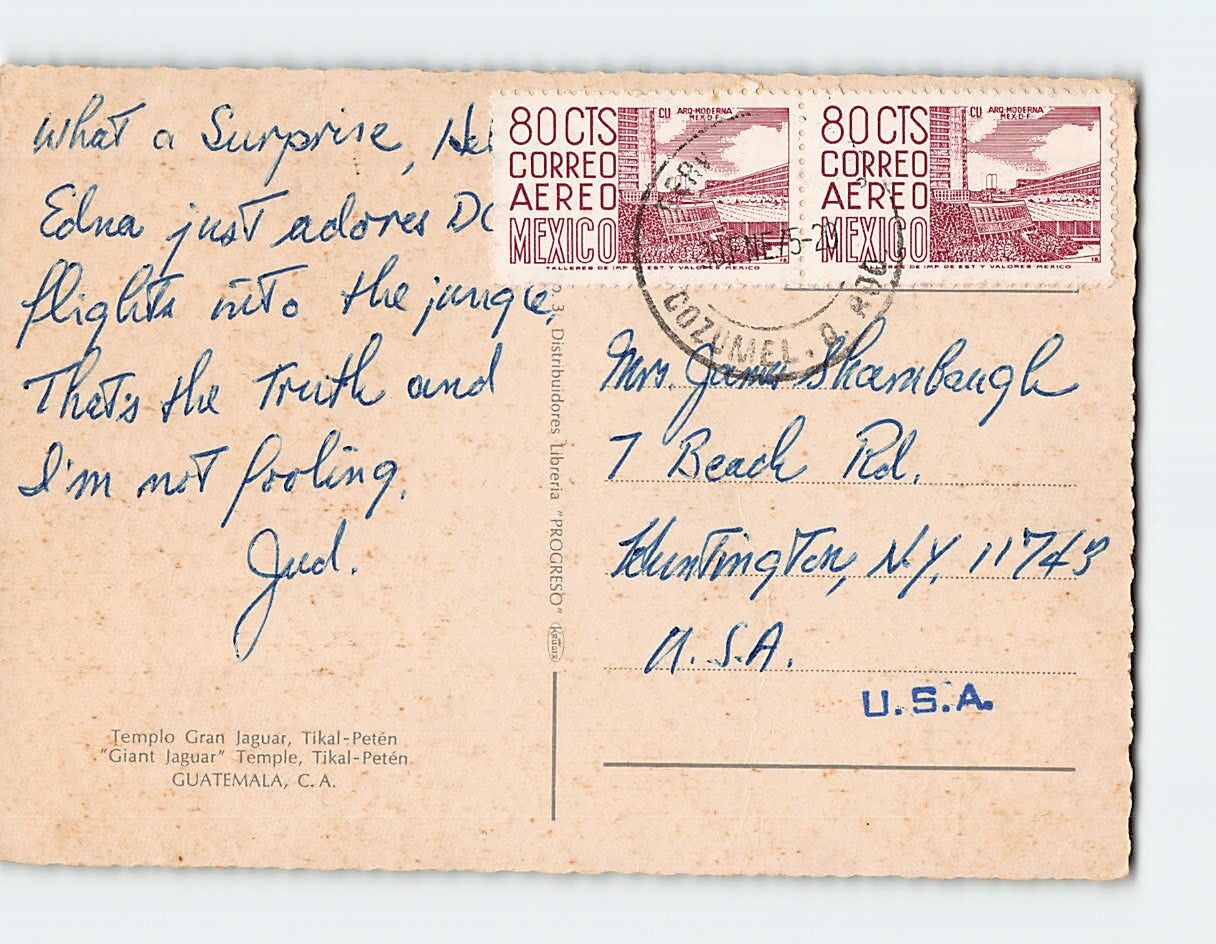 What a Surprise,
Edna just adores DC
flights into the jungle.
That's the truth and
I'm not fooling.
Jud.
Templo Gran Jaguar, Tikal-Petén
"Giant Jaguar" Temple, Tikal-Petén
GUATEMALA, C. A.
3, Distribuidores Librería "PROGRESO" KRÜGER
80 CTS
CORREO
AEREO
MEXICO
CU ARQ-MODERNA
MEX-D.F.
TALLERES DE IMP DE EST Y VALORES-MEXICO
80 CTS
CORREO
AEREO
MEXICO
CU ARQ-MODERNA
MEX-D.F.
TALLERES DE IMP DE EST Y VALORES-MEXICO
COZUMEL. Q. ROO
Mrs. Shambaugh
7 Beach Rd.
Huntington, N.Y. 11743
U.S.A.
U.S.A.